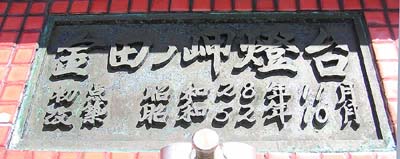 金田ノ岬燈台
初点 昭和28年11月
改築 昭和62年10月